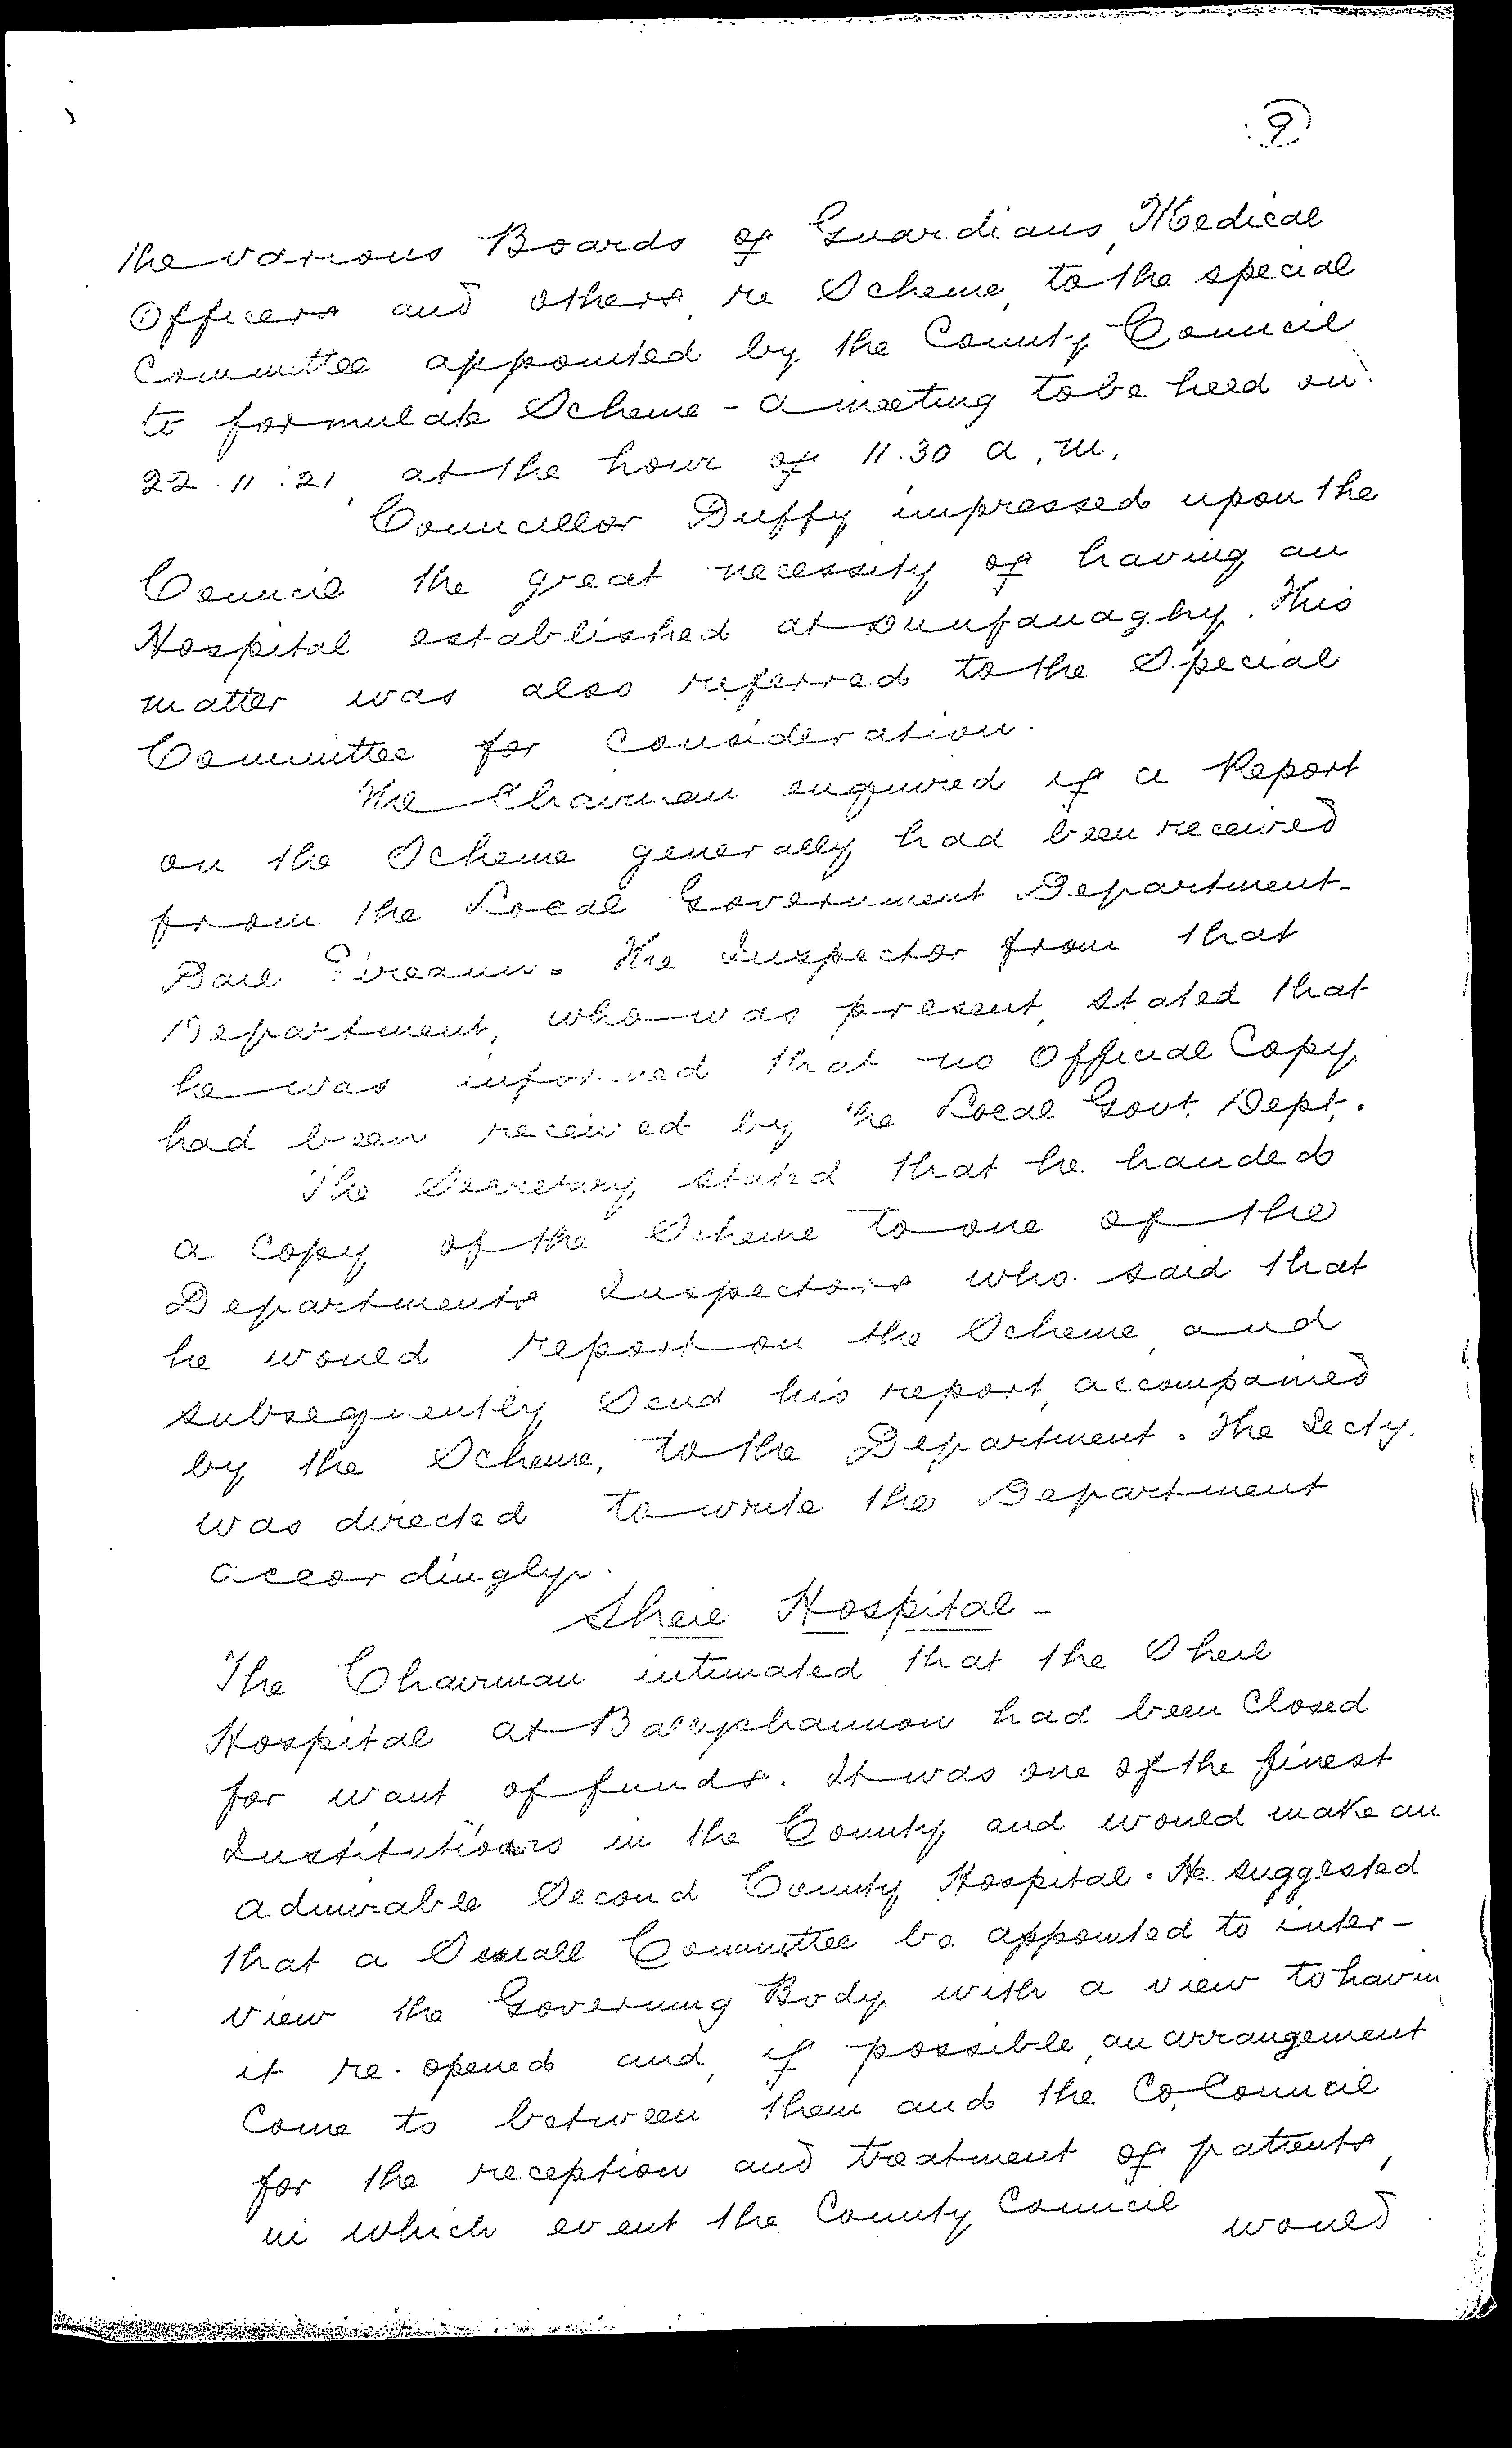 9
the various Boards of Guardians, Medical
Officers and others, re Scheme, to the special
Committee appointed by the County Council
to formulate Scheme - a meeting to be held on
22.11.21, at the hour of 11.30 a.m.
Councillor Duffy impressed upon the
Council the great necessity of having an
Hospital established at Dunfanaghy. This
matter was also referred to the Special
Committee for consideration.
The Chairman enquired if a Report
on the Scheme generally had been received
from the Local Government Department-
Dail Eireann. The Inspector from that
Department, who was present, stated that
he was informed that no Official Copy
had been received by the Local Govt. Dept.
The Secretary stated that he handed
a Copy of the Scheme to one of the
Departments Inspectors who said that
he would report on the Scheme, and
subsequently Send his report, accompanied
by the Scheme, to the Department. The Secty.
was directed to write the Department
accordingly.
Sheil Hospital -
The Chairman intimated that the Sheil
Hospital at Ballyshannon had been Closed
for want of funds. It was one of the finest
Institutions in the County and would make an
admirable Second County Hospital. He suggested
that a Small Committee be appointed to inter-
view the Governing Body with a view to havin
it re-opened and, if possible, an arrangement
Come to between them and the Co. Council
for the reception and treatment of patients,
in which event the County Council would